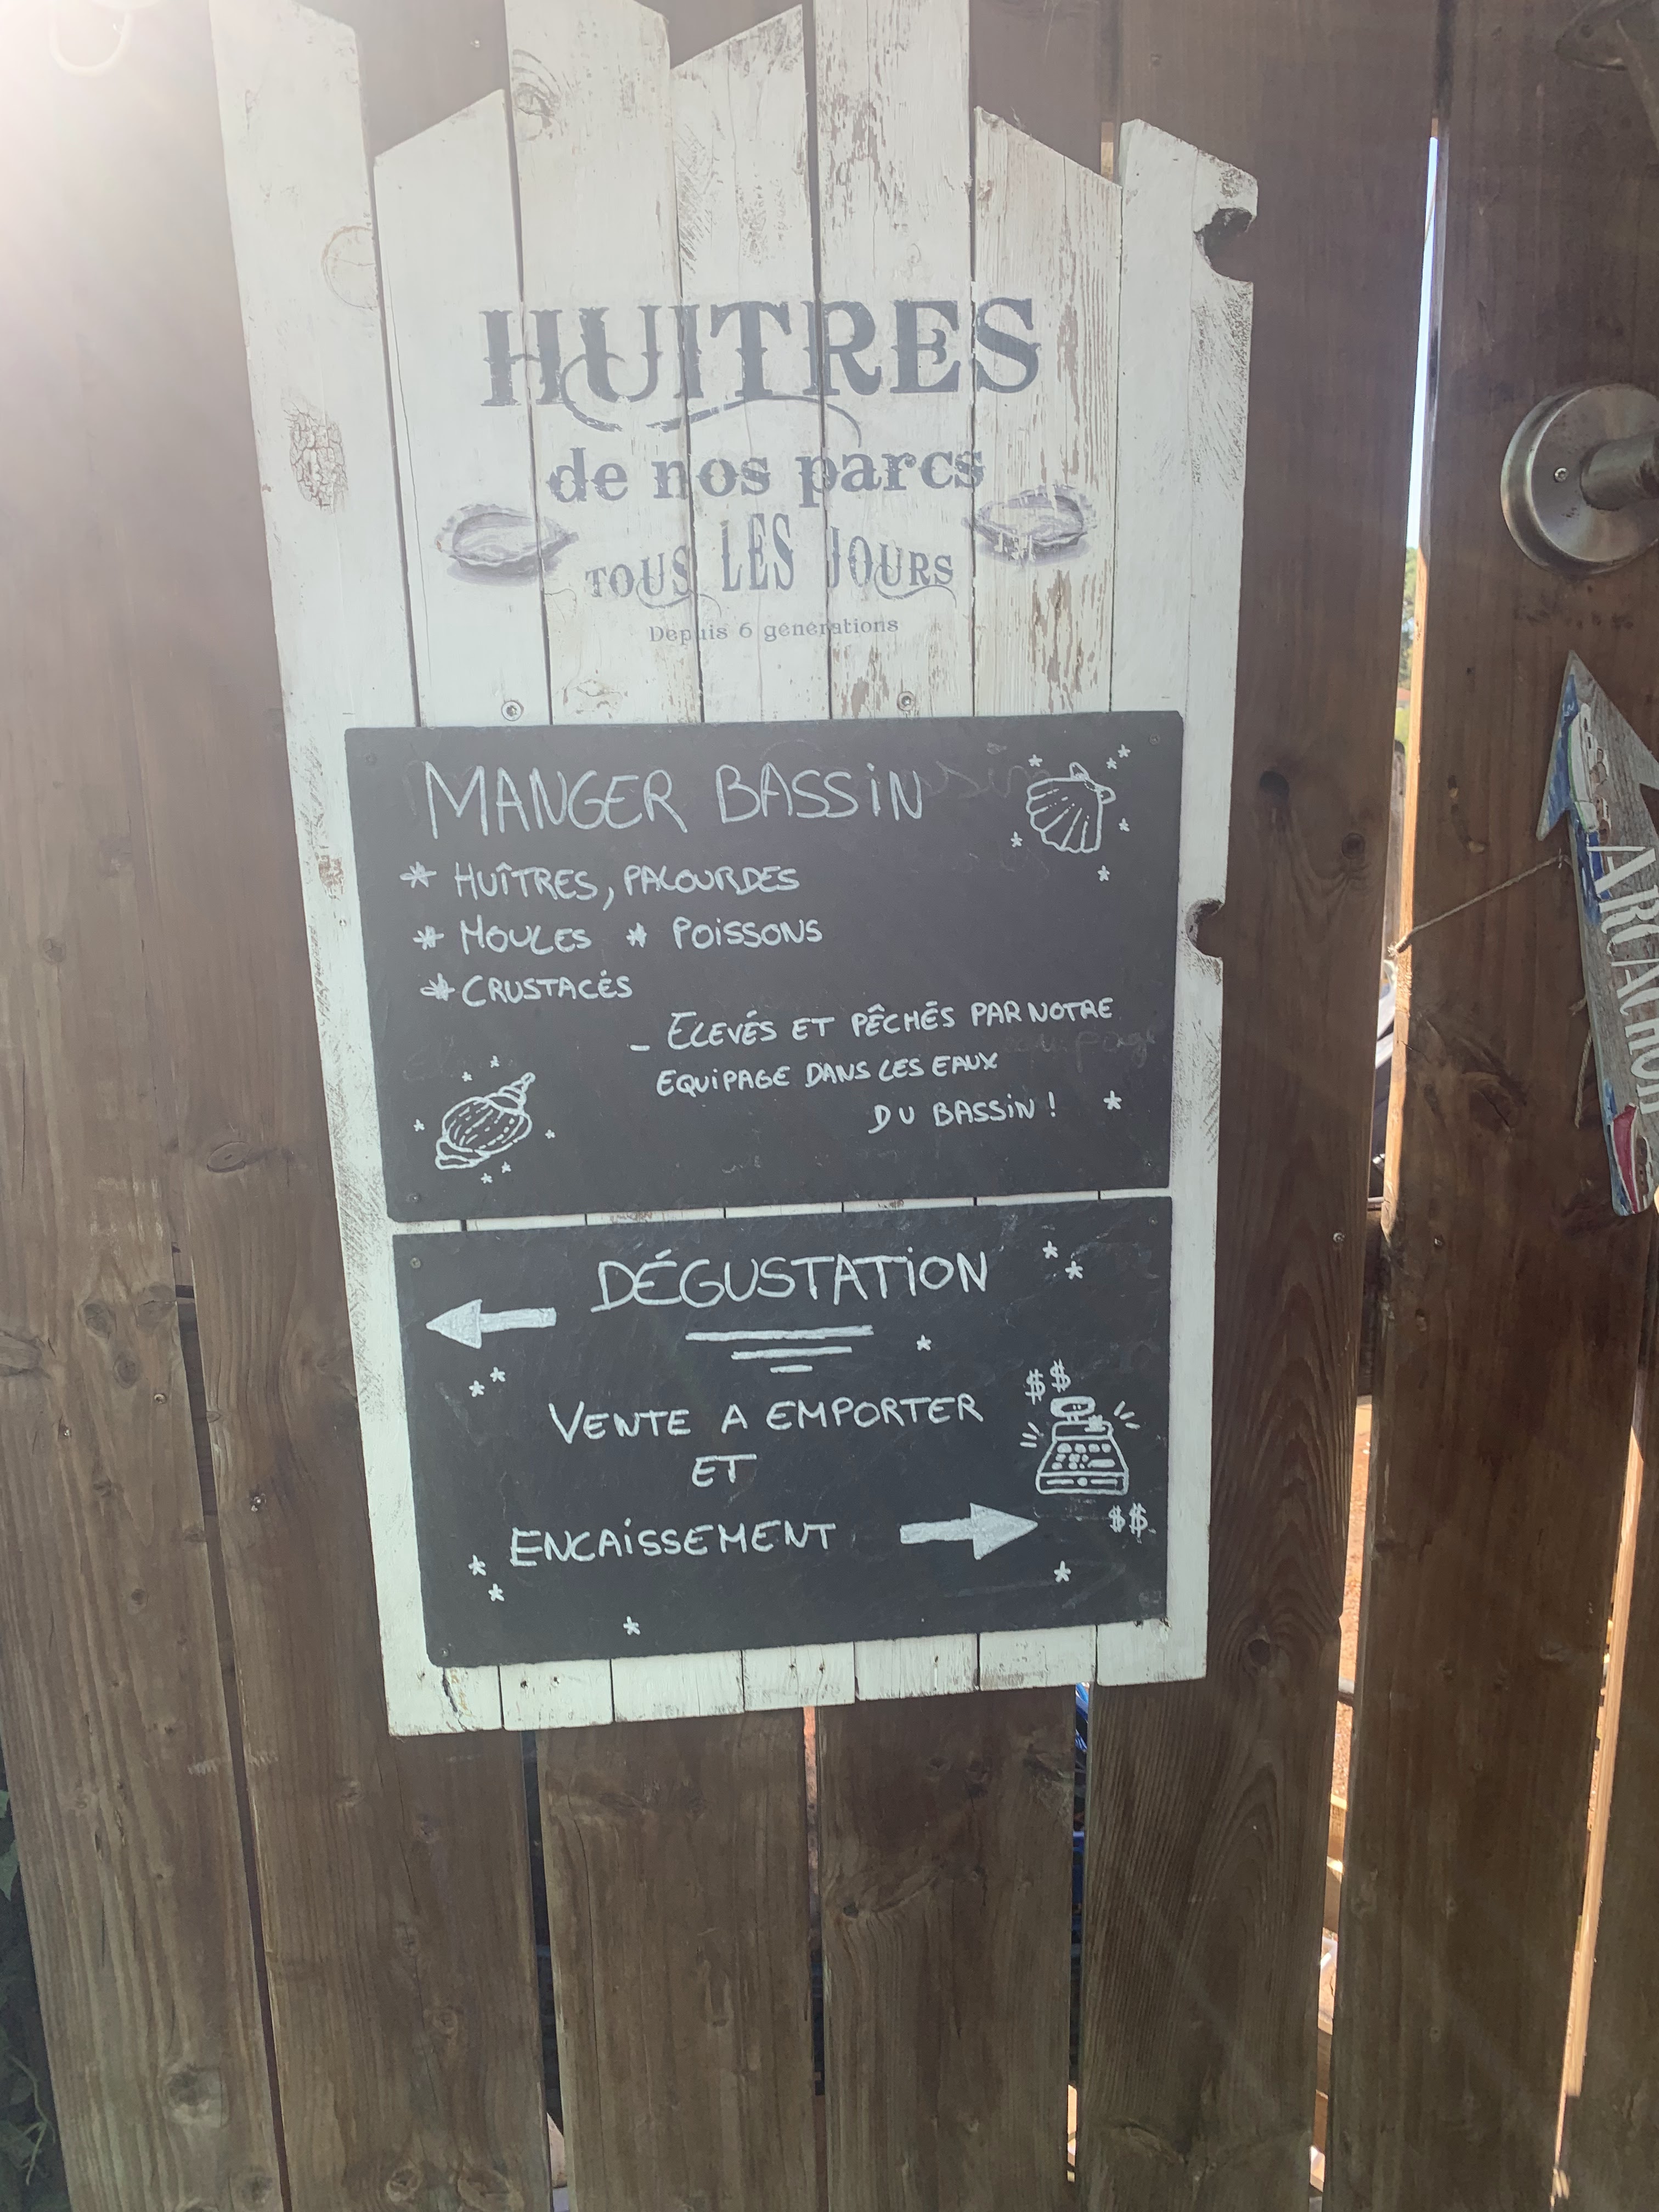 HUITRES
de nos parcs
TOUS LES JOURS
Depuis 6 générations
MANGER BASSIN
* HUÎTRES, PALOURDES
* MOULES * POISSONS
* CRUSTACÉS
- ELEVÉS ET PÊCHÉS PAR NOTRE
EQUIPAGE DANS LES EAUX
DU BASSIN !
DÉGUSTATION
VENTE A EMPORTER
ET
ENCAISSEMENT
$$
$$
ARCACHON